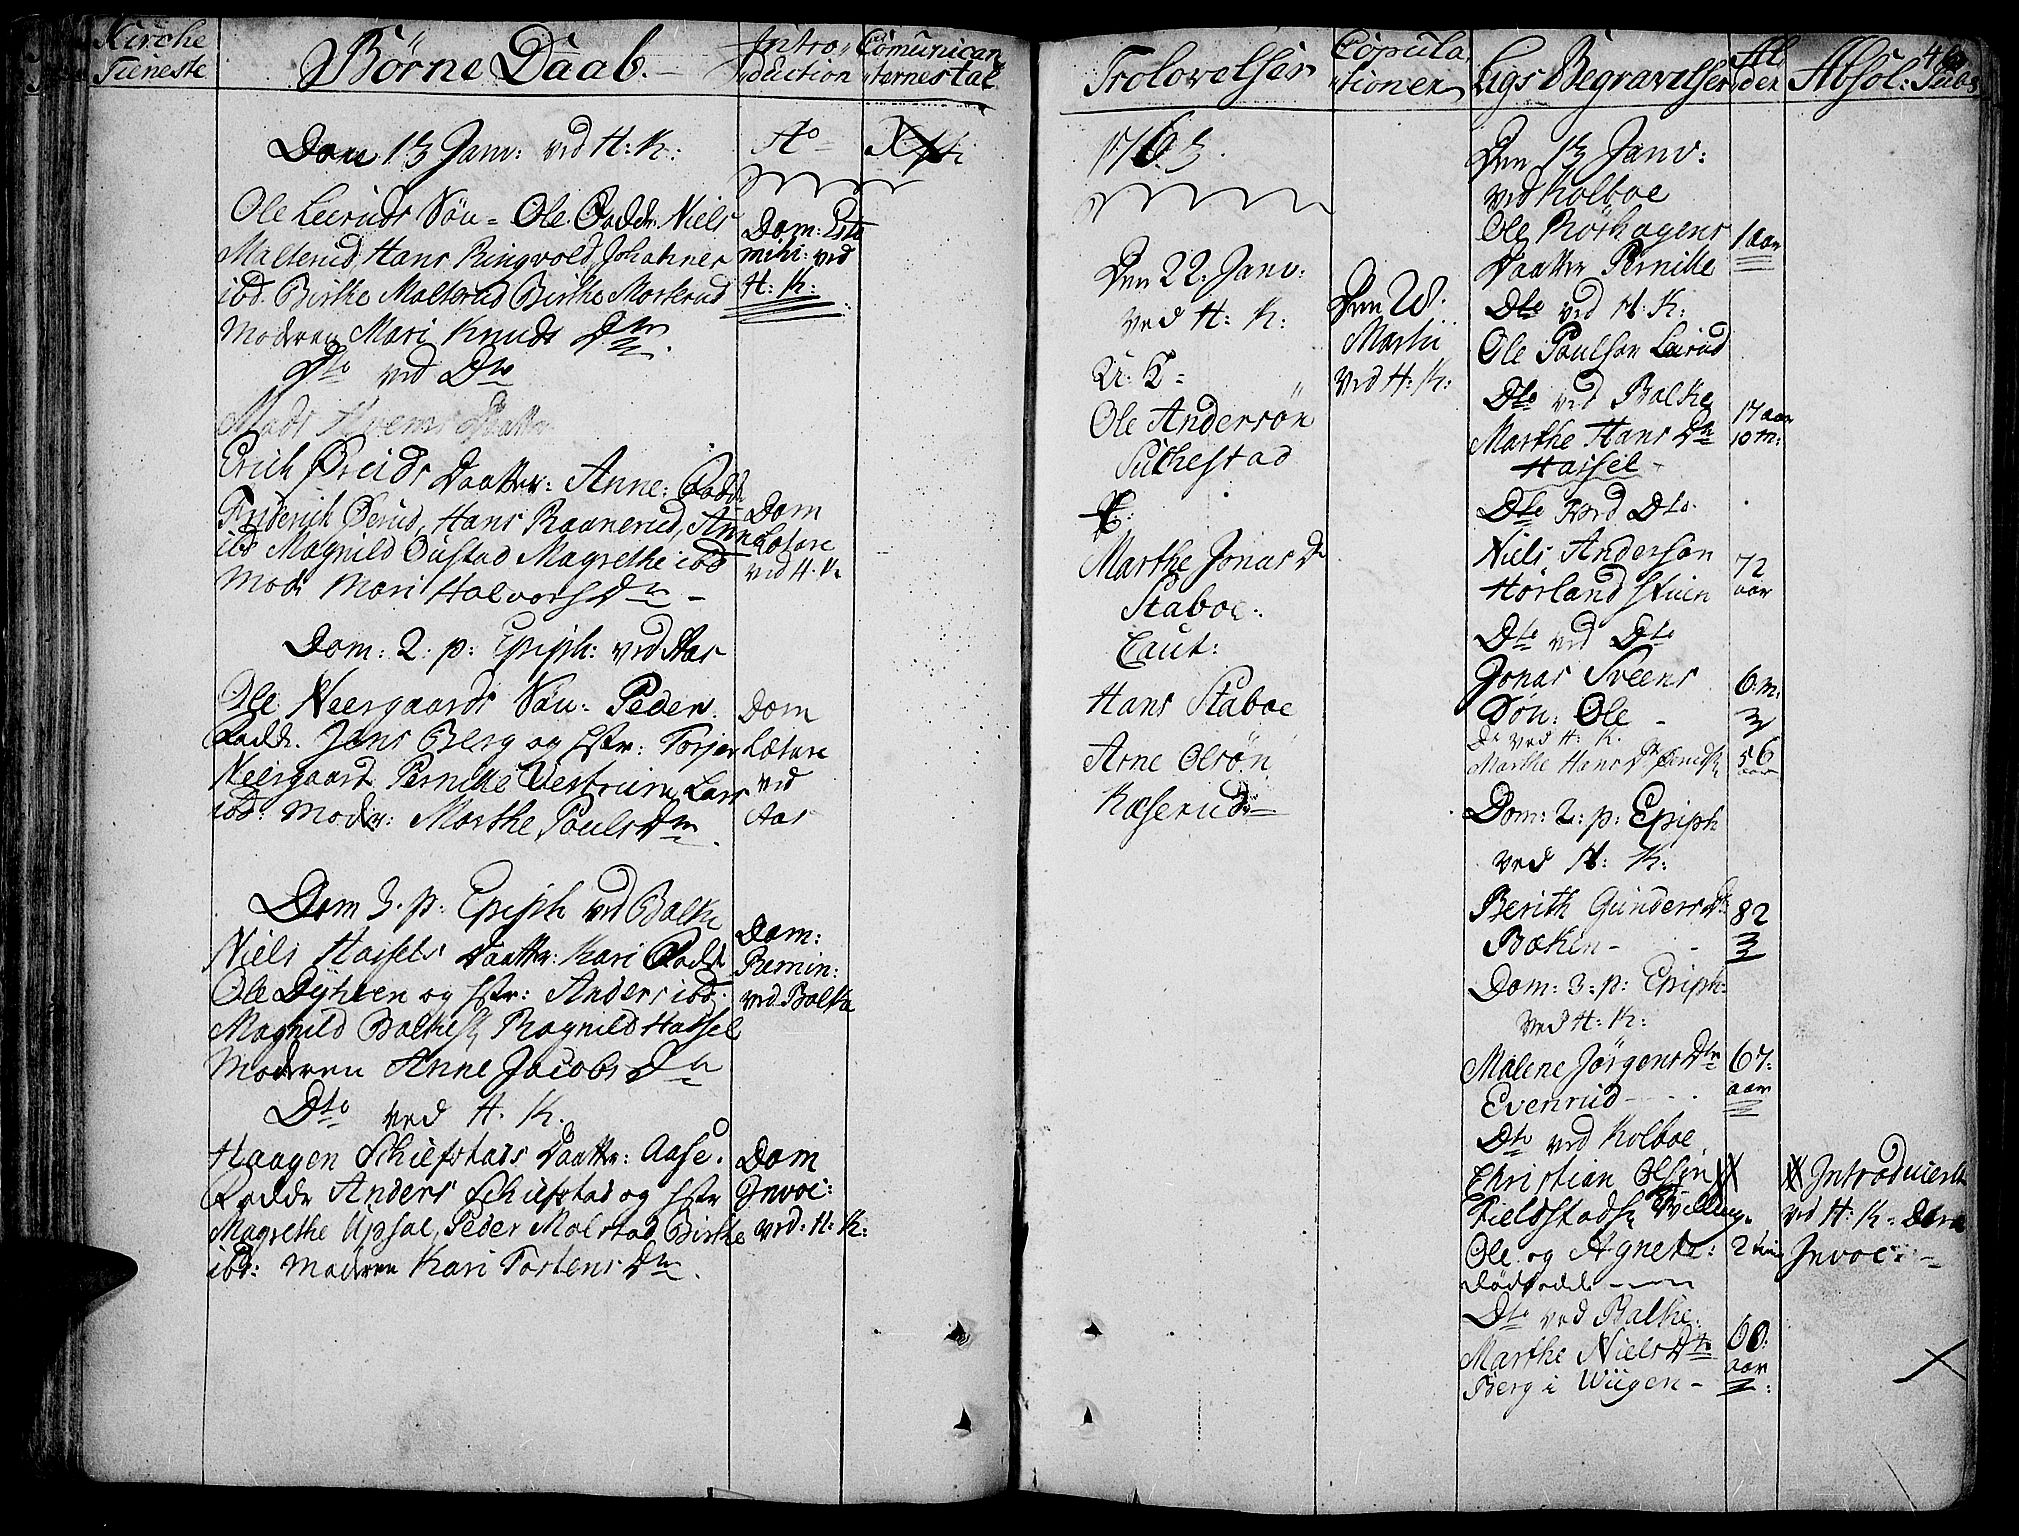 Kirche
Tieneste
Börne Daab.
Intro-
duction
Comunican
ternes tal
Trolovelser
Copula
tioner
Ligs Begravelser
Al
der
Absol: Pub:
46
Dom 13 Janv: ved H: K:
Ole Leeruds Søn - Ole. Fadd: Niels
Malterud, Hans Ringvold, Johannes
ibd. Birthe Malterud Birthe Morterud
Moderen Mari Knuds Dtr.
Dto ved Dto
Mads Daatter
Erich Øruds Daatter: Anne: Fadd:
Friderich Øerud, Hans Raanerud, Anne
ibd Magnild Øustad Magrethe ibd
Modr Mari Halvors Dtr -
Dom: 2: p: Epiph: ved Aas
Ole Neergaards Søn: Peder.
Fadd. Jens Berg og Hstr: Torger
Neergaard Pernille Vestrum, Lars
ibd: Modr: Marthe Pouls Dtr.
Dom 3. p: Epiph ved Balke
Niels Hassels Daatter: Kari Fadd:
Ole Dyhren og Hstr: Anders ibd:
Magnild Balke, Ragnild Hassel
Moderen Anne Jacobs Dtr
Dto ved H. K.
Haagen Schiefstads Daatter: Aase.
Faddr Anders Schiefstad og Hstr
Magrethe Upsal, Peder Molstad, Birthe
ibd: Moderen Kari Tostens Dtr.
Ao -
Xsti
Dom: Esto
mihi: ved
H: K:
Dom
Lætare
ved H. K.
Dom
Lætare
ved
Aas
Dom:
Remin:
ved Balke
Dom
Invoc:
ved: H: K:
1763.
Den 22: Janv:
ved H: K:
U: K-
Ole Andersön
Suchestad
P:
Marthe Jonas Dr
Staboe:
Caut:
Hans Staboe
Arne Olsön
Kaserud
Den 28.
Martii
ved H: K:
Den 13 Janv:
ved Kolboe
Ole Röshagens
Daatter Pernille
1 aar
Dto ved H: K:
Ole Poulsøn Leirud
Dto ved Balke
Marthe Hans Dtr
Hassel -
17 aar
10 m:
Dto ved Dto.
Niels Anderson
Hörland
72
aar
Dto ved Dto
Jonas Sveens
Søn: Ole -
6. m.
Do ved H: K.
Marthe Hans Dtr
56
aar
Dom: 2: p: Epiph
ved H: K:
Berith Gunders Dtr
Bækin -
82
Dom: 3: p: Epiph:
ved H: K:
Malene Jörgens Dtr
Evenrud
67:
aar
Dto ved Kolboe
Christian Olsen
Fieldstads Tvilling.
Ole og Agnete:
Dödfødde
Dto ved Balke:
Marthe Niels Dtr
Berg i Wiigen -
60:
aar
Introduceret
ved H: K: Dom
Invoc: -